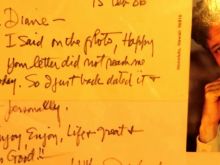 15 Dec 86
Diane—
I said on the photo, Happy
you letter did not reach me
today. So I just back dated it &
personally.
Enjoy, Enjoy, Life is great &
so Good!!